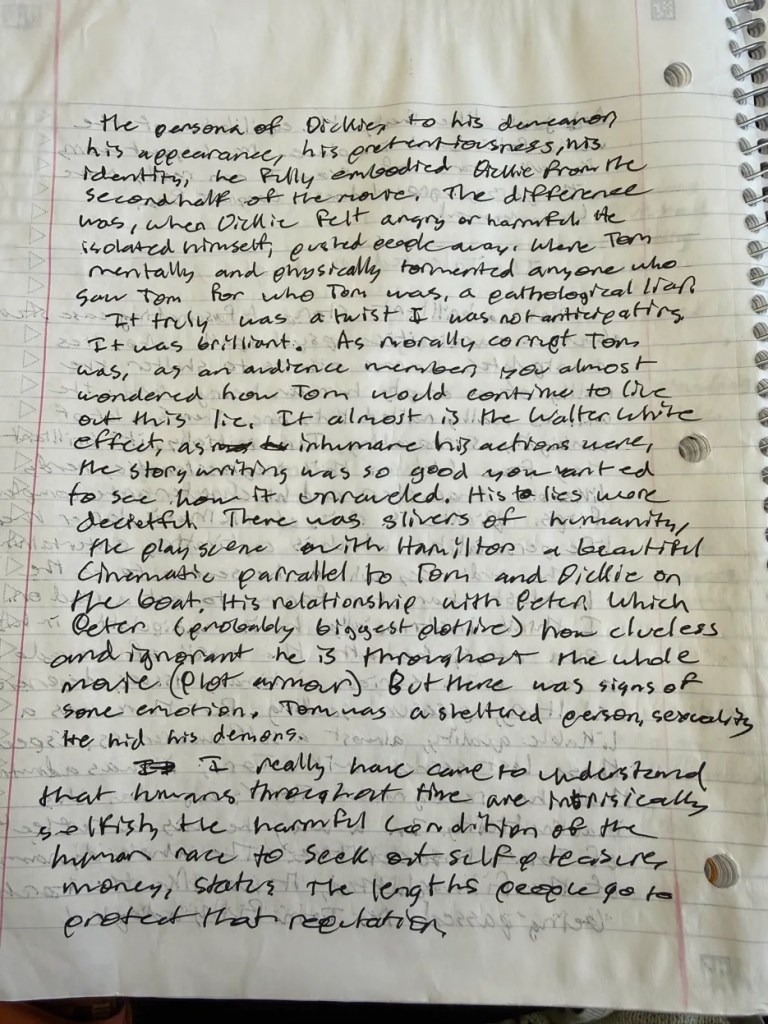 the persona of Dickie, to his demeanor,
his appearance, his pretentiousness, his
identity, he fully embodied Dickie from the
second half of the movie. The difference
was, when Dickie felt angry or harmful He
isolated himself, pushed people away. Where Tom
mentally and physically tormented anyone who
saw Tom for who Tom was, a pathological liar.
It truly was a twist I was not anticipating.
It was brilliant. As morally corrupt Tom
was, as an audience member, you almost
wondered how Tom would continue to live
out this lie. It almost is the Walter White
effect, as inhumane his actions were,
the story writing was so good you wanted
to see how it unraveled. His lies were
deceitful. There was slivers of humanity,
the play scene with Hamilton a beautiful
Cinematic parrallel to Tom and Dickie on
the boat. His relationship with Peter. Which
Peter (probably biggest plotline) how clueless
and ignorant he is throughout the whole
movie (Plot armour) But there was signs of
some emotion. Tom was a sheltered person, sexuality
He hid his demons.
I really have came to understand
that humans throughout time are intrisically
selfish, the harmful condition of the
human race to seek out self pleasure,
money, status. The lengths people go to
protect that reputation.